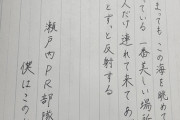 まっても この海を眺めて
っている 一番美しい場所
人だけ 連れて来てあ
とずっと反射する
瀬戸内PR部隊
僕はこの